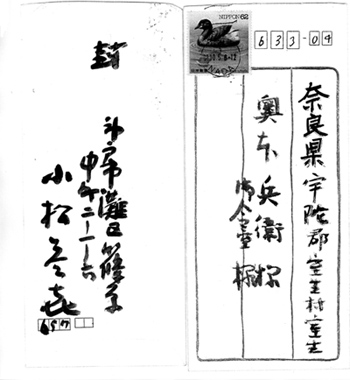 NIPPON 62
633-04
奈良県宇陀郡室生村室生
奥本兵衛様
令室様
封
神戸市灘区篠原
中町二ー一ー六
小松益喜
657